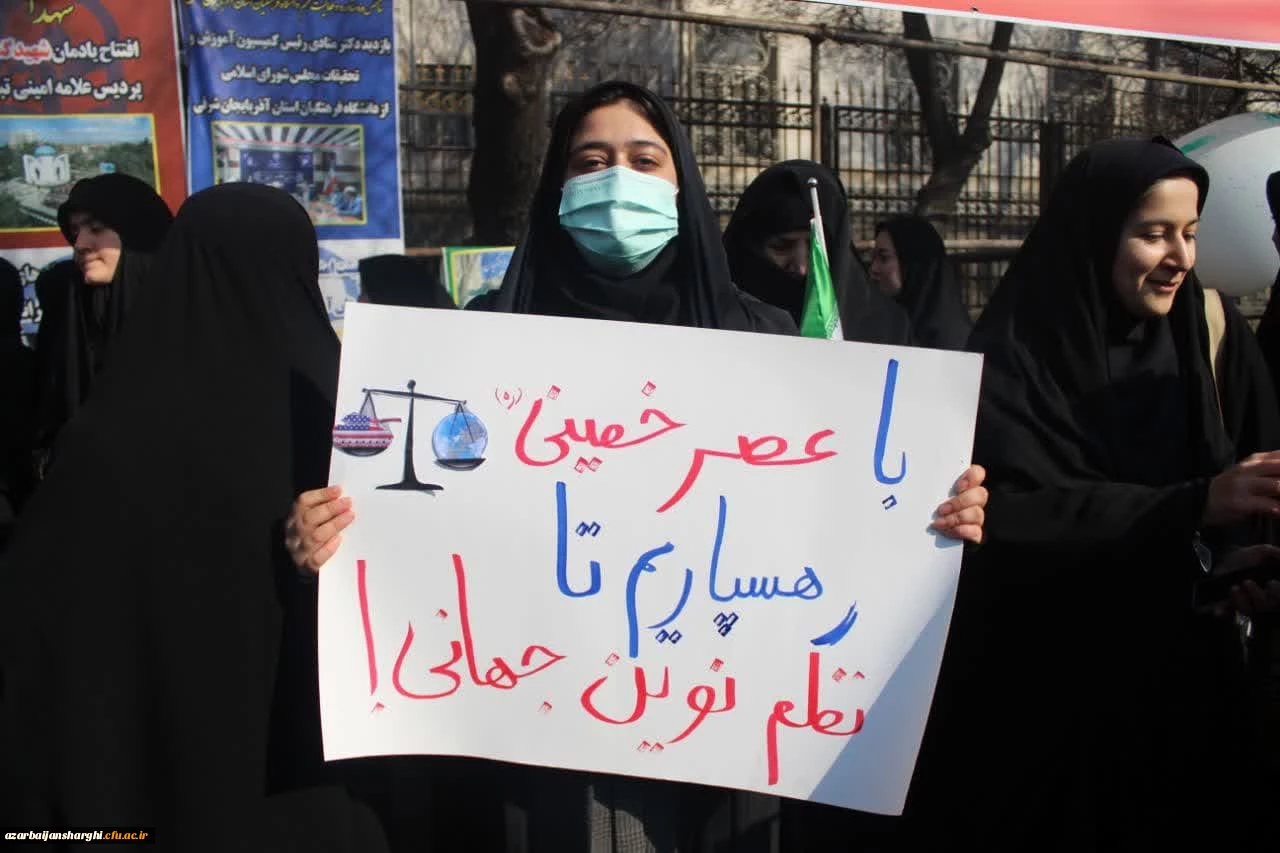 شهدا
افتتاح یادمان
پردیس علامه امینی
بازدید دکتر منادی رئیس کمیسیون آموزش و
تحقیقات مجلس شورای اسلامی
از دانشگاه فرهنگیان استان آذربایجان شرقی
با عصر خمینی (ره)
رهسپاریم تا
نظم نوین جهانی!
azarbaijansharghi.cfu.ac.ir